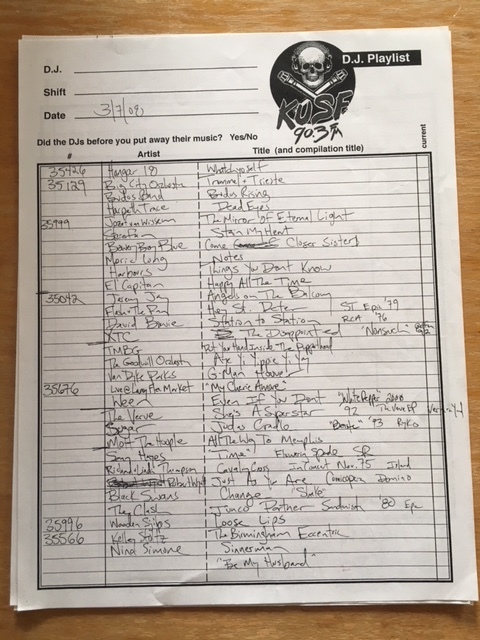 D.J.
D.J. Playlist
Shift
Date 3/7/09
KUSF
90.3 FM
Did the DJs before you put away their music? Yes/No
# Artist Title (and compilation title) current
35426 Hangar 18 Whatchyoself
35129 Big City Orchestra Trammel + Trieste
Baidos Band Baidus Rising
Harpeth Trace Dead Eyes
35999 Jozef van Wissem The Mirror of Eternal Light
Stain My Heart
Bowery Boy Blue Come Closer Sisters
Morric Long Notes
Harbours Things You Dont Know
El Capitan Happy All The Time
35042 Jeremy Jay Angels on The Balcony
Flash + The Pan Hey St. Peter ST Epic '79
David Bowie Station to Station RCA '76
XTC The Disappointed "Nonsuch"
TMBG Put Your Hand Inside The Puppet Head
The Goodwill Orchestra Aye Yi Yippie Yi Yay
Van Dyke Parks G-Man Hoover
35676 Live @ Laney Flea Market "My Cherie Amour"
Ween Even If You Don't "White Pepper" 2000
The Verve She's A Superstar 92 The Verve EP Vernon Yard
Sugar Judas Cradle "Beaster" '93 Ryko
Mott The Hoople All The Way To Memphis
Sean Hayes "Time" Flowering Spade SR
Richard + Linda Thompson Calvary Cross In Concert Nov. 75 Island
Robert Wyatt Just As You Are Comicopera Domino
Black Swans Change "Shake"
The Clash Junco Partner Sandinista '80 Epic
35996 Wooden Ships Loose Lips
35566 Kelley Stoltz The Birmingham Eccentric
Nina Simone Sinnerman
"Be My Husband"